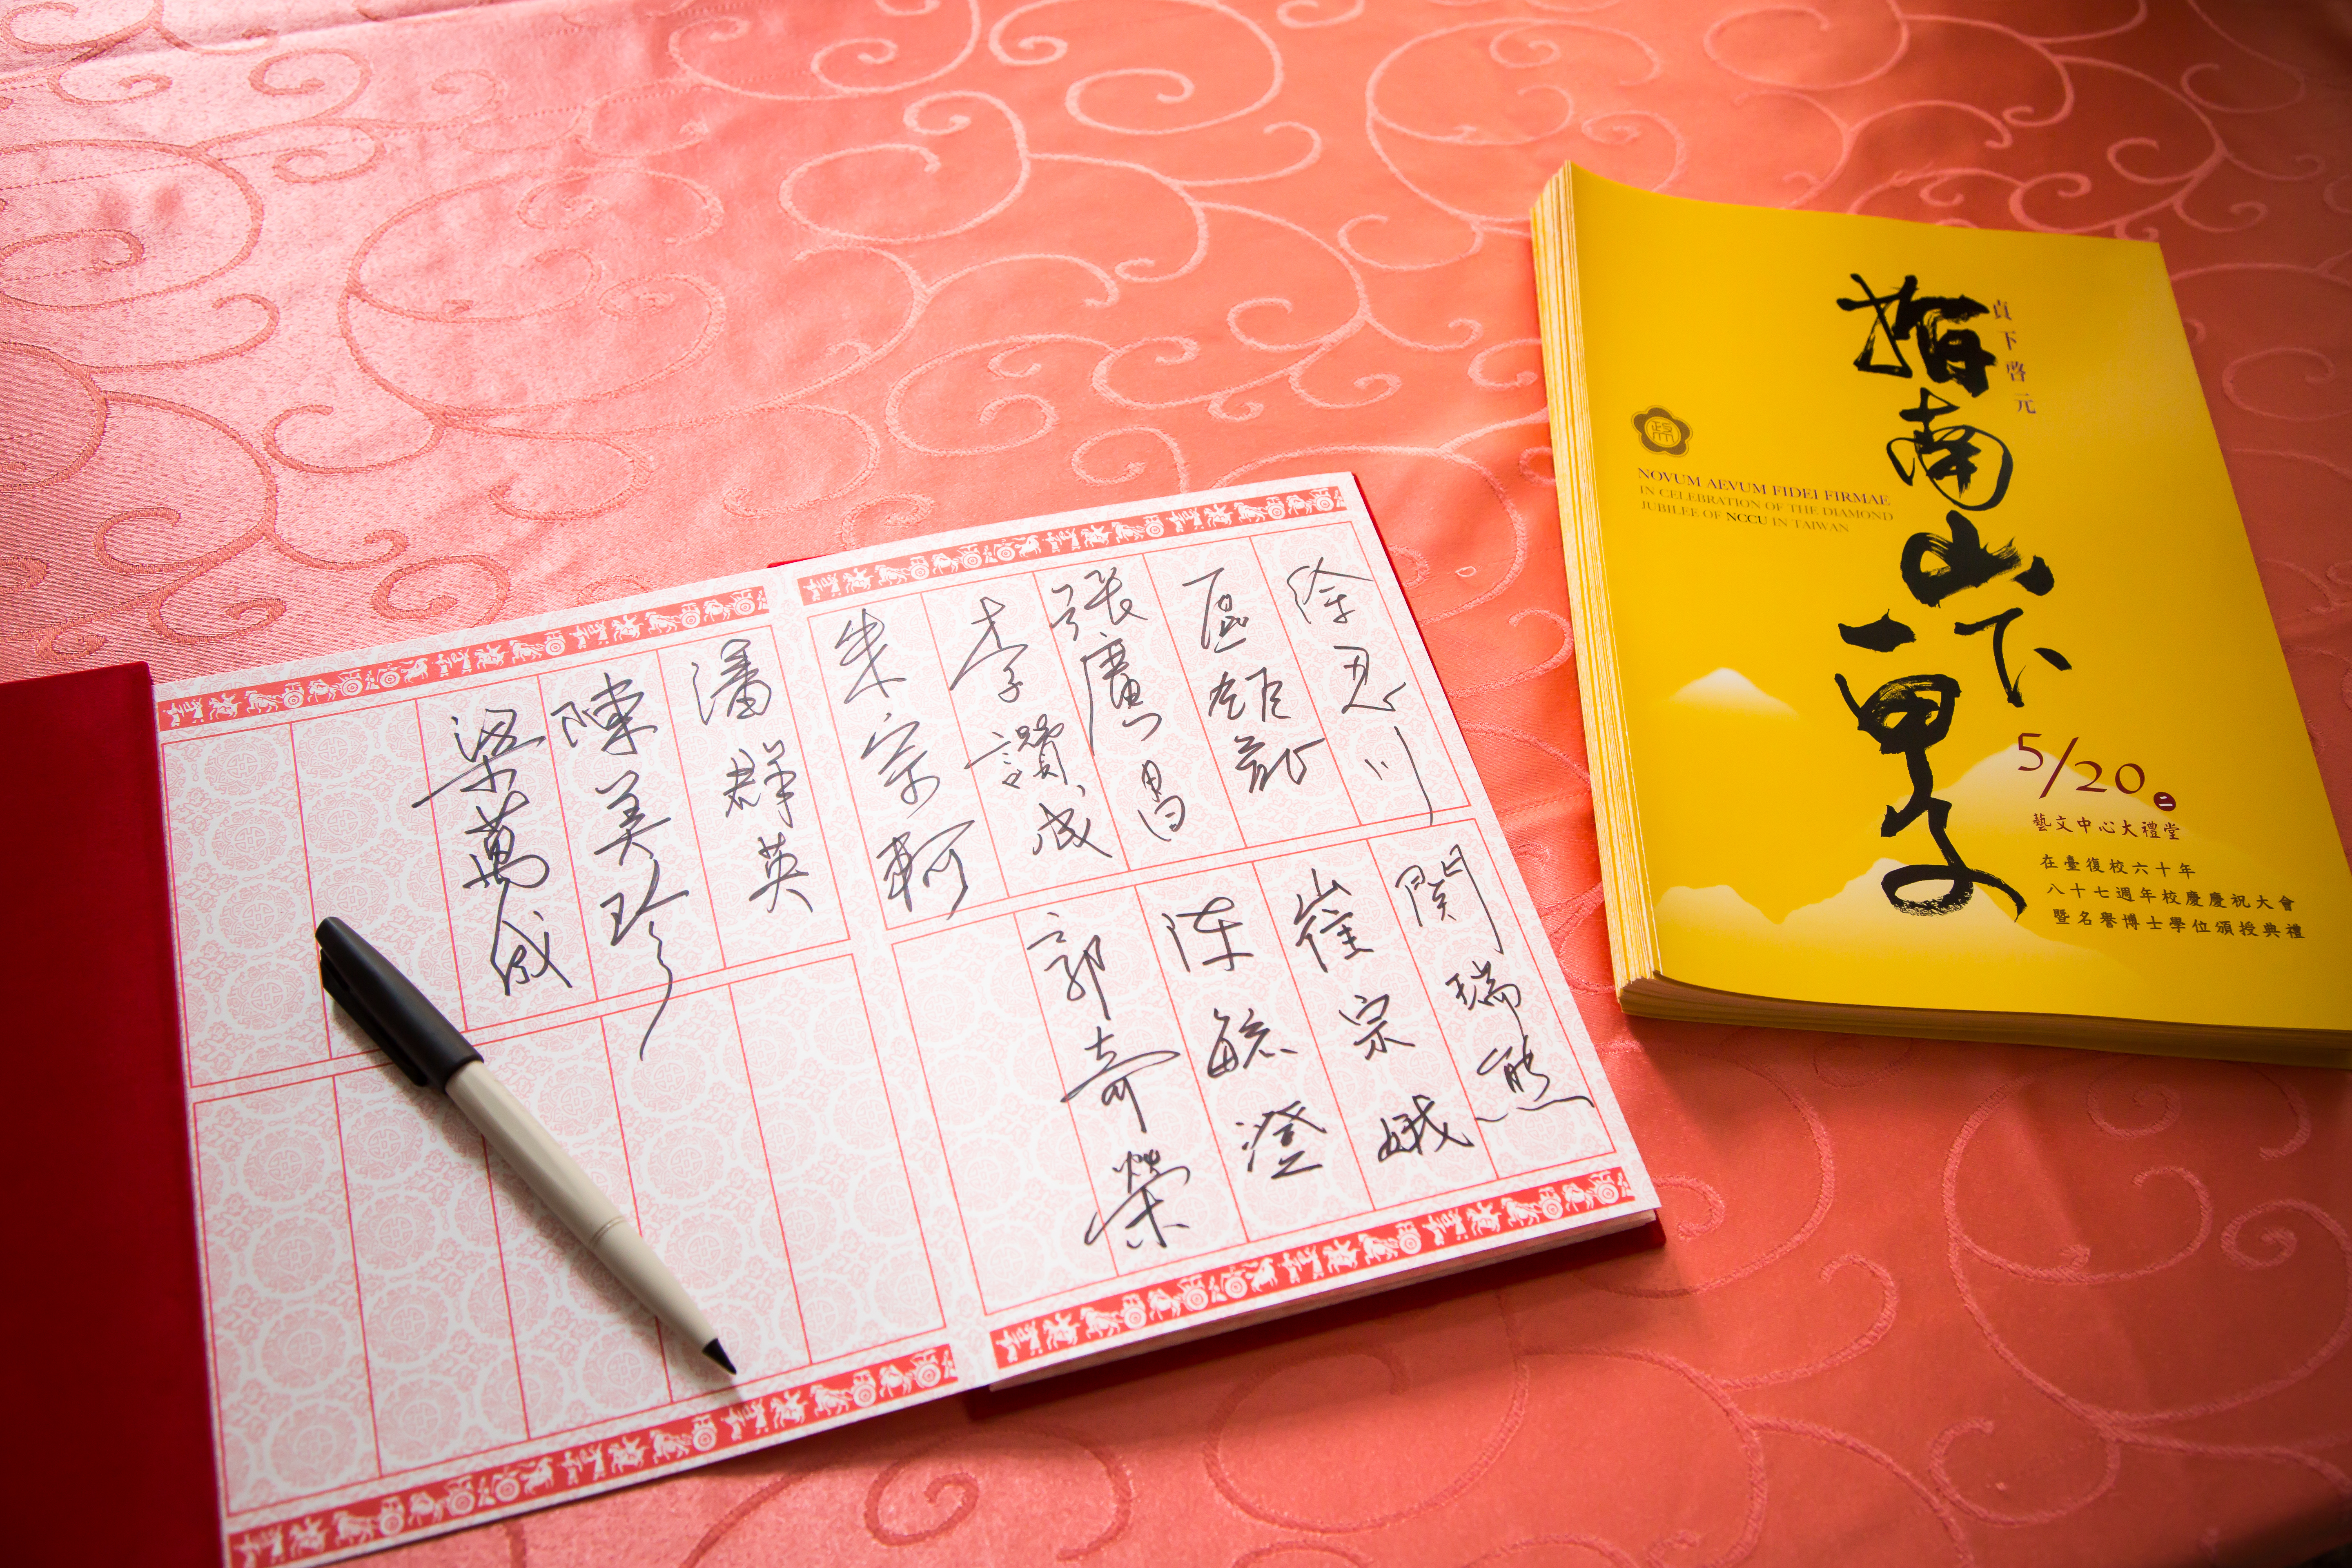 徐忍川
區鉅龍
張廣昌
李讚成
朱宗軻
潘群英
陳美珍
梁萬成
關瑞熊
崔宗娥
陈毓澄
郭奇榮
貞下啓元
指南山下
一甲子
政大
NOVUM AEVUM FIDEI FIRMAE
IN CELEBRATION OF THE DIAMOND
JUBILEE OF NCCU IN TAIWAN
5/20 二
藝文中心大禮堂
在臺復校六十年
八十七週年校慶慶祝大會
暨名譽博士學位頒授典禮